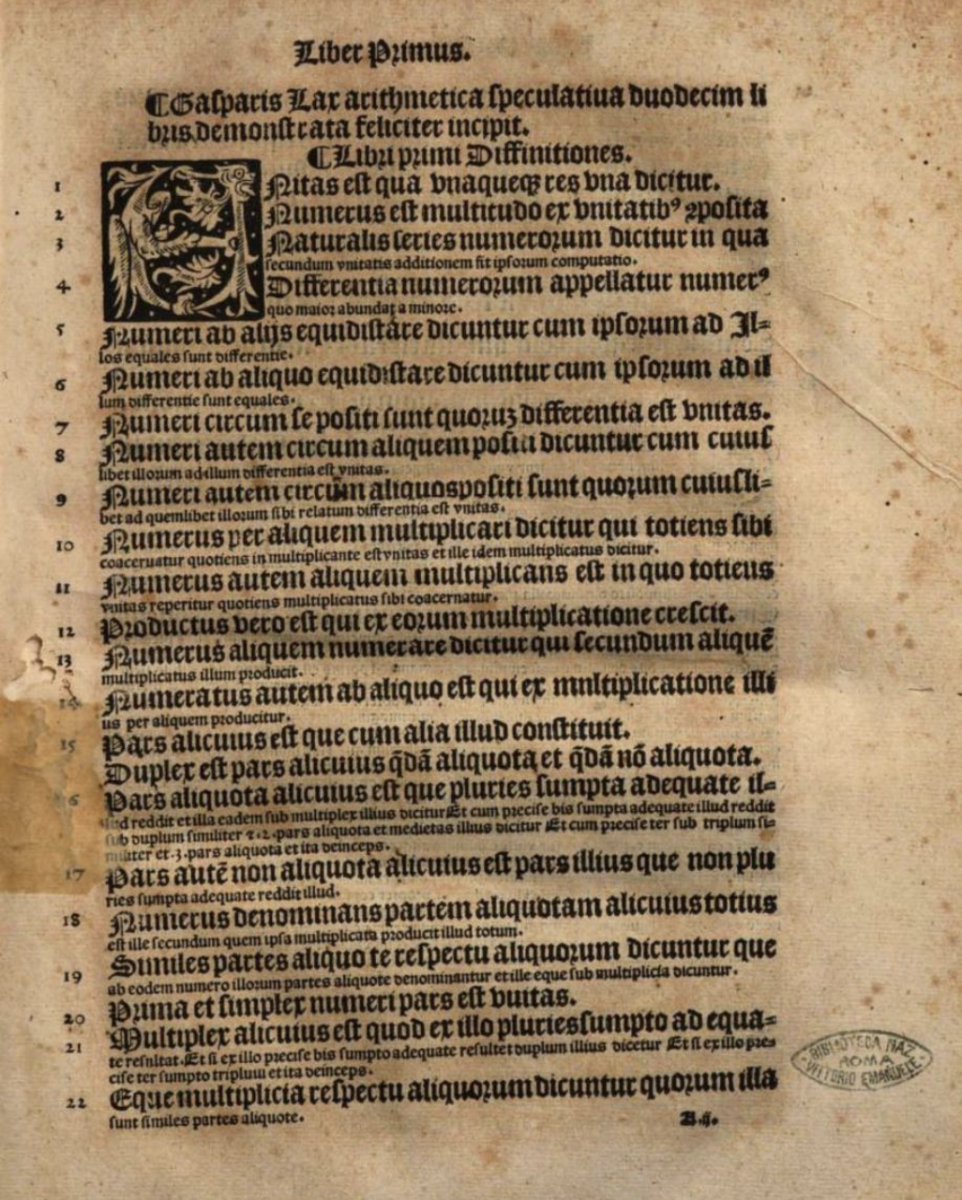 Liber Primus.
¶Gasparis Lax arithmetica speculatiua duodecim li
bris demonstrata feliciter incipit.
¶Libri primi Diffinitiones.
1 VNitas est qua vnaqueqꝫ res vna dicitur.
2 Numerus est multitudo ex vnitatibꝰ ꝯposita
3 Naturalis series numerorum dicitur in qua
secundum vnitatis additionem fit ipsorum computatio.
4 Differentia numerorum appellatur numerꝰ
quo maior abundat a minore.
5 Numeri ab alijs equidistare dicuntur cum ipsorum ad Il-
los equales sunt differentie.
6 Numeri ab aliquo equidistare dicuntur cum ipsorum ad il
lum differentie sunt equales.
7 Numeri circum se positi sunt quoruꝫ differentia est vnitas.
8 Numeri autem circum aliquem positi dicuntur cum cuius
libet illorum ad illum differentia est vnitas.
9 Numeri autem circum aliquos positi sunt quorum cuiusli-
bet ad quemlibet illorum sibi relatum differentia est vnitas.
10 Numerus per aliquem multiplicari dicitur qui totiens sibi
coaceruatur quotiens in multiplicante est vnitas et ille idem multiplicatus dicitur.
11 Numerus autem aliquem multiplicans est in quo totiens
vnitas reperitur quotiens multiplicatus sibi coacernatur.
12 Productus vero est qui ex eorum multiplicatione crescit.
13 Numerus aliquem numerare dicitur qui secundum aliquē
multiplicatus illum producit.
14 Numeratus autem ab aliquo est qui ex mnltiplicatione illi
us per aliquem producitur.
15 Pars alicuius est que cum alia illud constituit.
Duplex est pars alicuius q̄dā aliquota et q̄dā nō aliquota.
6 Pars aliquota alicuius est que pluries sumpta adequate il-
d reddit et illa eadem sub multiplex illius dicitur Et cum precise bis sumpta adequate illud reddit
sub duplum similiter ⁊ .2. pars aliquota et medietas illius dicitur Et cum precise ter sub triplum si-
militer et .3. pars aliquota et ita deinceps.
17 Pars autē non aliquota alicuius est pars illius que non plu
ries sumpta adequate reddit illud.
18 Numerus denominans partem aliquotam alicuius totius
est ille secundum quem ipsa multiplicata producit illud totum.
19 Similes partes aliquo te respectu aliquorum dicuntur que
ab eodem numero illorum partes aliquote denominantur et ille eque sub multiplicia dicuntur.
20 Prima et simplex numeri pars est vnitas.
21 Multiplex alicuius est quod ex illo pluries sumpto ad equa-
te resnltat. Et si ex illo precise bis sumpto adequate resultet duplum illius dicetur Et si ex illo pre-
cise ter sumpto triplum et ita deinceps.
22 Eque multiplicia respectu aliquorum dicuntur quorum illa
sunt similes partes aliquote.
BIBLIOTECA NAZ
ROMA
VITTORIO EMANUELE